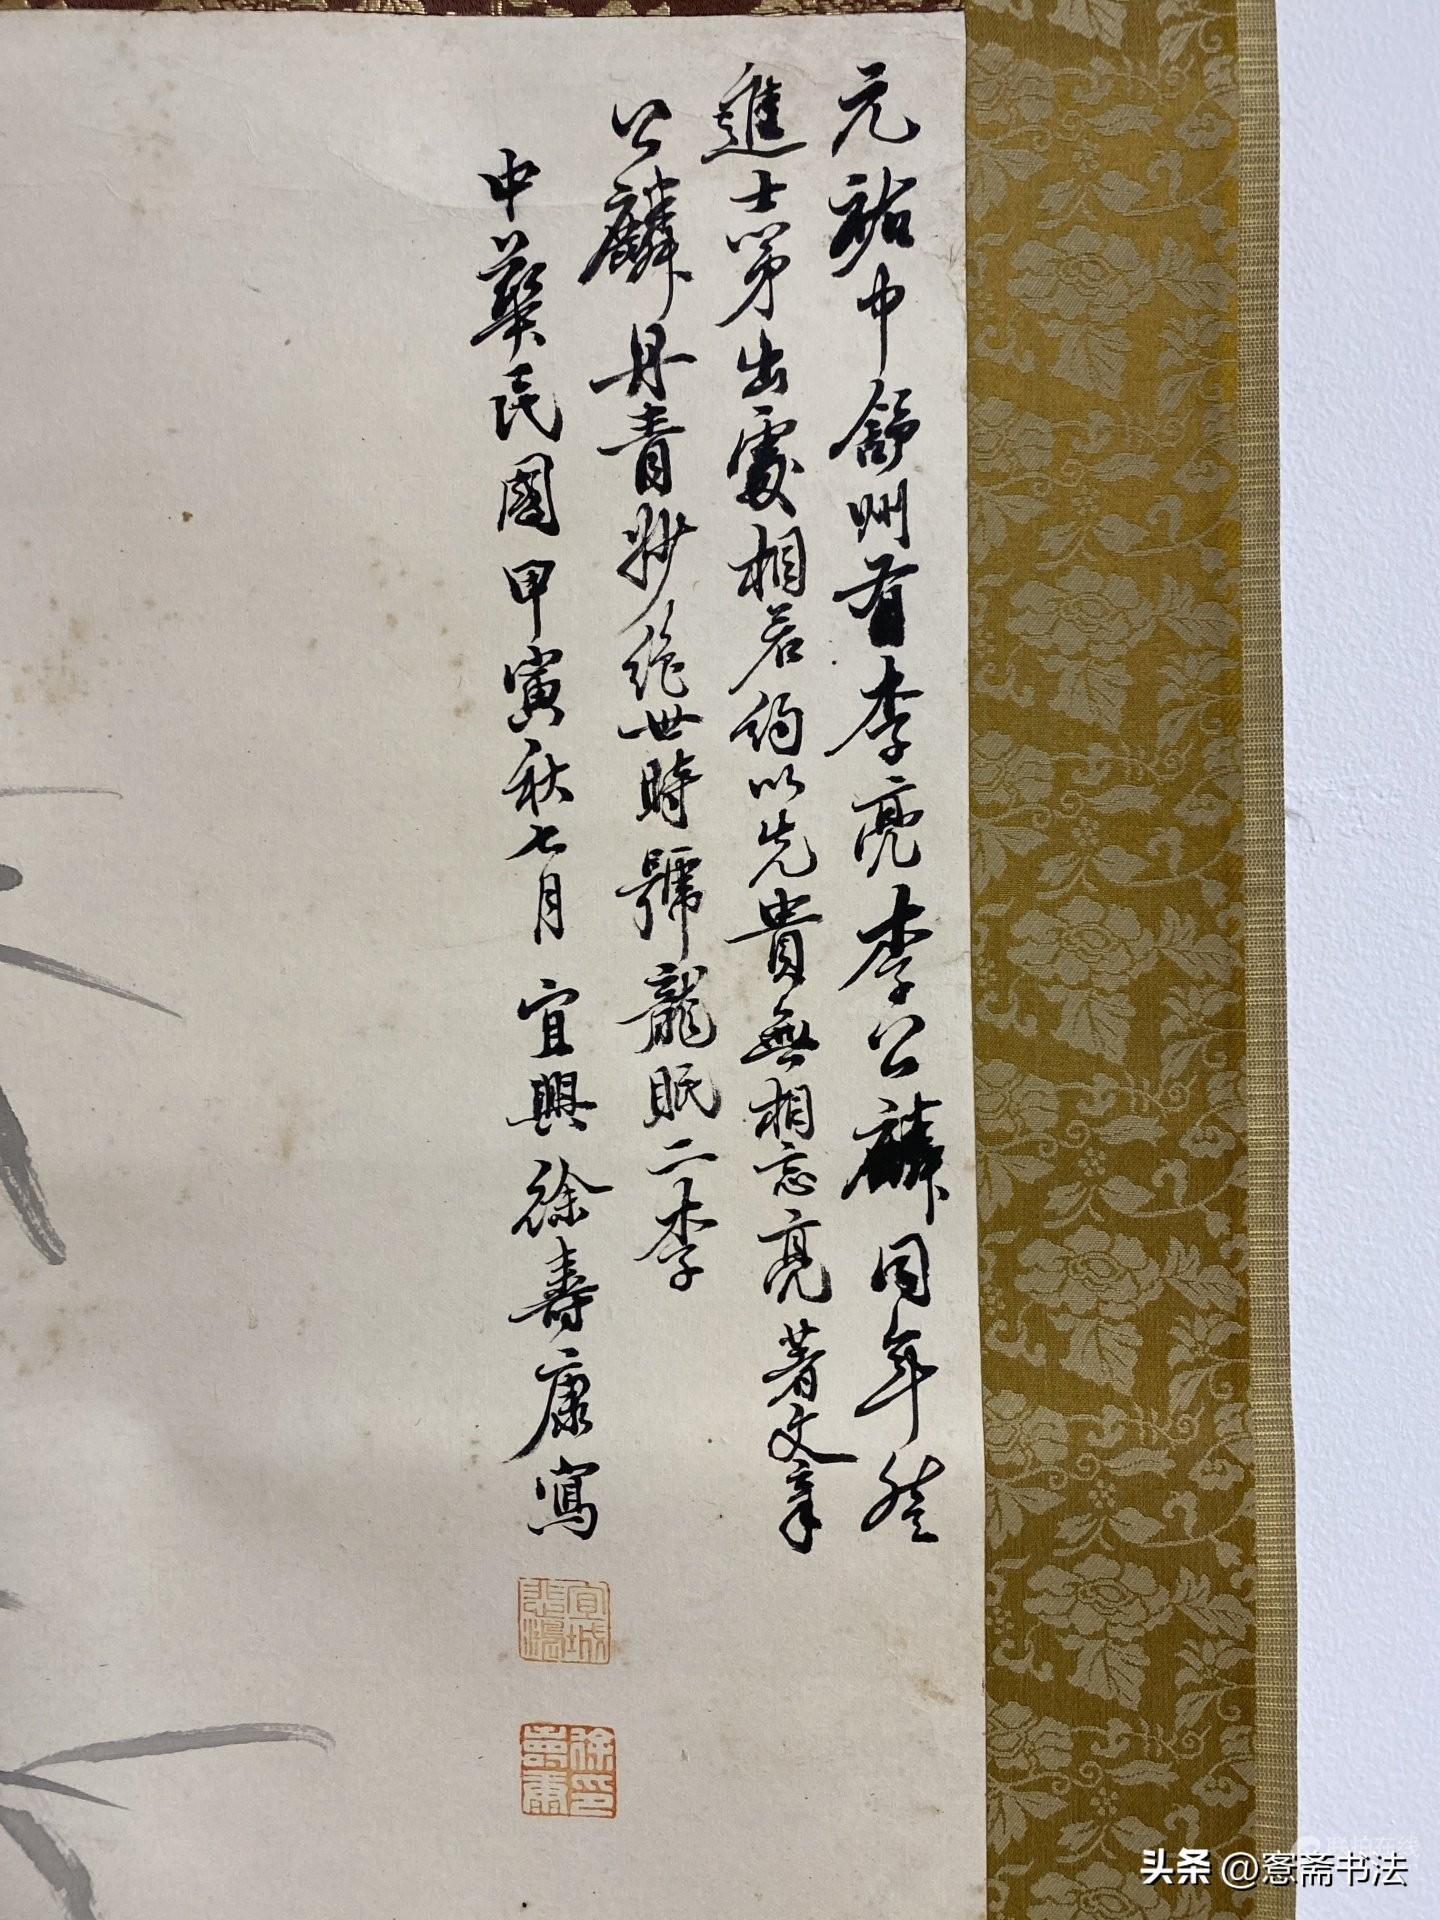 元祐中舒州有李亮李公麟同年登
進士第出處相若約以先貴無相忘亮著文章
公麟丹青妙絕世時號龍眠二李
中華民國甲寅秋七月宜興徐壽康寫
宜城悲鴻
徐壽康印
头条@窓斋书法